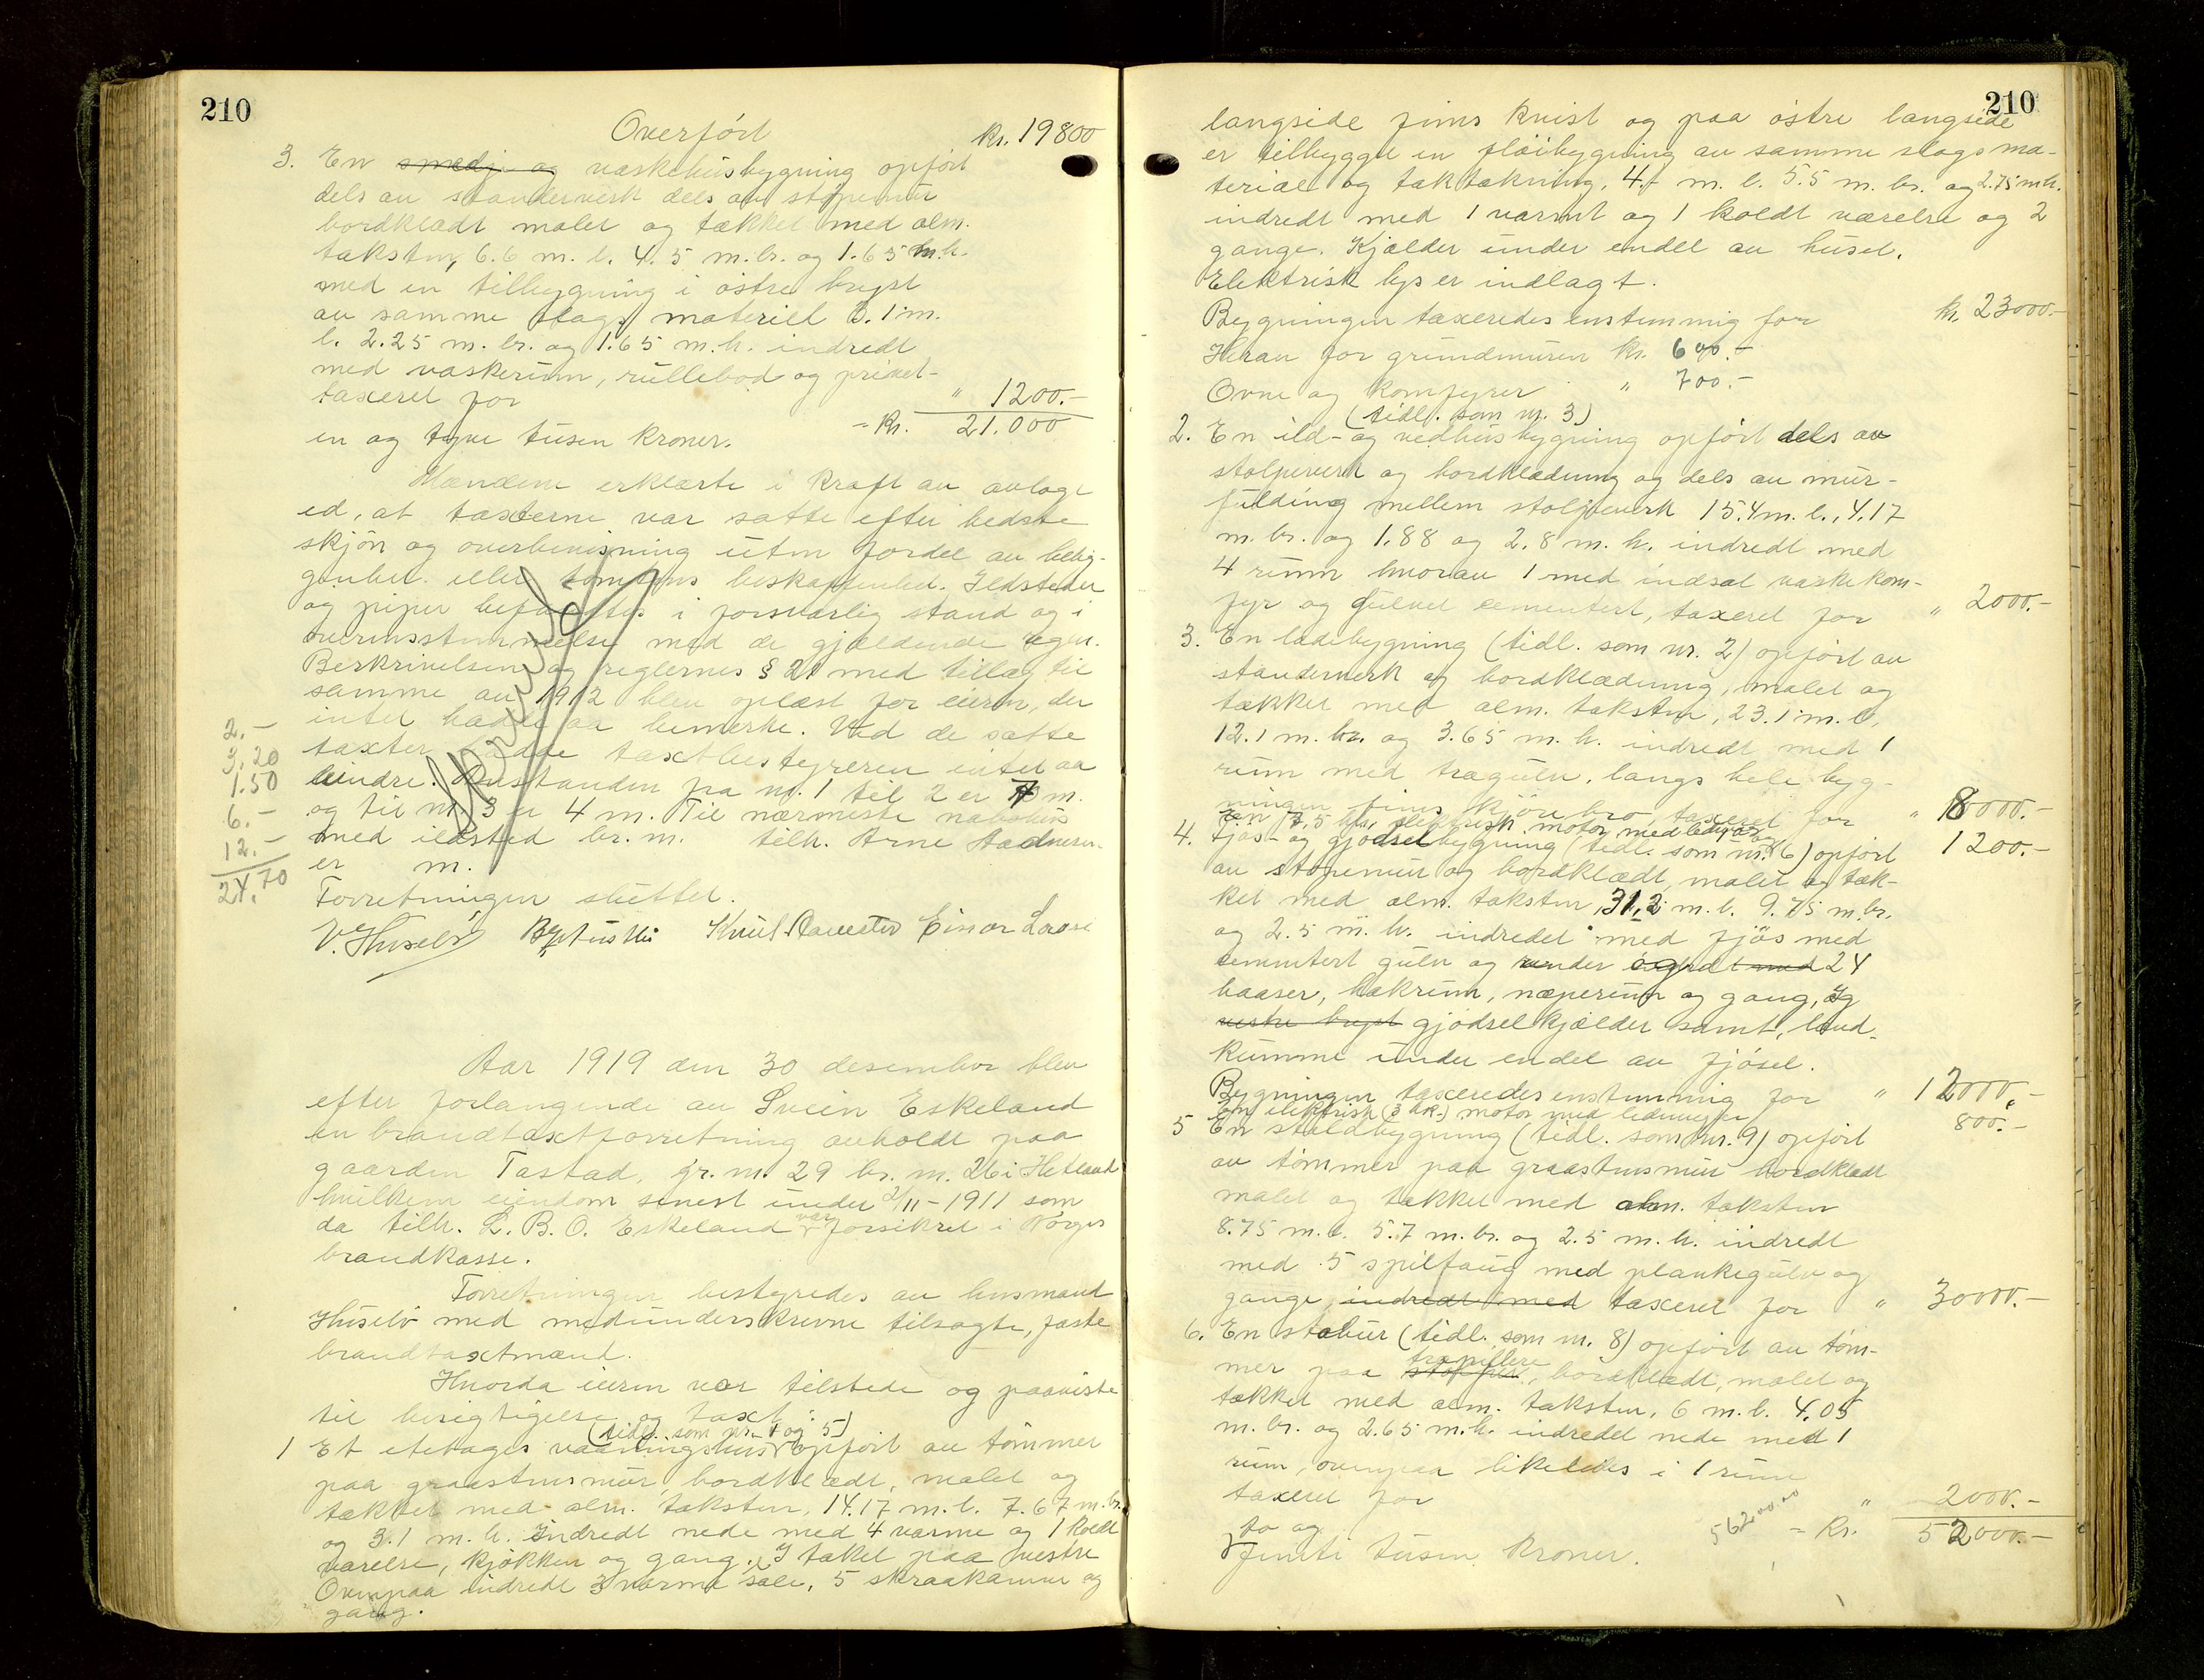 210
Overført kr. 19800
3. En smedje og vaskehusbygning opført
dels av standerverk dels av støpemur
bordklædt malet og tækket med alm.
taksten, 6.6 m. l. 4.5 m. br. og 1.65 m.h.
med en tilbygning i østre bryst
av samme slags materiell 3.1 m.
l. 2.25 m. br. og 1.65 m. h. indredt
med vaskerum, rullebod og privet-
taxeret for " 1200.-
en og tyve tusen kroner. = Kr. 21.000
Mændene erklærte i kraft av avlagt
ed, at taxterne var satte efter bedste
skjøn og overbevisning uten fordel av belig-
genhet eller tomtens beskaffenhed. Ildsteder
og piper befandtes i forsvarlig stand og i
overensstemmelse med de gjældende regler.
Berkrivelsen og reglernes § 21 med tillæg til
samme av 1912 blev oplæst for eieren, der
intet hadde aa bemerke. Ved de satte
taxter hadde taxtbestyreren intet aa
erindre. Avstanden fra nr. 1 til 2 er 7 m.
og til nr. 3 er 4 m. Til nærmeste nabohus
med ildsted br. nr. tilh. Arne
er m.
Forretningen sluttet.
2.-
3.20
1.50
6.-
12.-
24.70
V. Husebø Knut Einar
Aar 1919 den 30 desember blev
efter forlangende av Svein Eskeland
en brandtaxtforretning avholdt paa
gaarden Tastad, gr. nr. 29 br. nr. 26 i Hetland
hvilken eiendom senest under 2/11-1911 som
da tilh. L. B. O. Eskeland var forsikret i Norges
brandkasse.
Forretningen bestyredes av lensmand
Husebø med medunderskrevne tilsagte, faste
brandtaxtmænd.
Hvorda eieren var tilstede og paaviste
til besigtigelse og taxt:
(tidl. som nr. 1 og 5)
1 Et etetages vaaningshus opført av tømmer
paa graastensmur, bordklædt, malet og
tækket med alm. taksten, 14.17 m. l. 7.67 m. br.
og 3.1 m. h. Indredt nede med 4 varme og 1 koldt
værelse, kjøkken og gang. I taket paa vestre
Ovenpaa indredt 3 varme sale, 5 skraakamre og
gang.
210
langside fins kvist og paa østre langside
er tilbygget en fløibygning av samme slags ma-
teriale og taktækning, 4.- m. l. 5.5 m. br. og 2.75 m h.
indredt med 1 varmt og 1 koldt værelse og 2
gange. Kjælder under endel av huset.
Elektrisk lys er indlagt.
Bygningen taxeredes enstemmig for kr. 23000.-
Herav for grundmuren kr. 600.-
Ovne og komfyrer " 700.-
(tidl. som nr. 3)
2. En ild- og vedhusbygning opført dels av
stolpeverk og bordklædning og dels av mur-
fulding mellem stolpeverk 15.4 m. l., 4.17
m. br. og 1.88 og 2.8 m. h. indredt med
4 rum hvorav 1 med indsat vaskekom-
fyr og gulvet cementert, taxeret for " 2000.-
3. En ladebygning (tidl. som nr. 2) opført av
standerverk og bordklædning, malet og
tækket med alm. taksten, 23.1 m. l.
12.1 m. br. og 3.65 m. h. indredt med 1
rum med trægulv, langs hele byg-
ningen fins kjørebro, taxeret for " 10000.-
En 7,5 hk. elektrisk motor med ledninger 1200.-
4. Fjøs- og gjødselbygning (tidl. som nr. 6) opført
av støpemur og bordklædt, malet og tæk-
ket med alm. taksten, 31,2 m. l. 9.75 m. br.
og 2.5 m. h. indredet med fjøs med
sementert gulv og under 24
baaser, hakrum, næperum og gang, og
vestre bryst gjødselkjælder samt land-
kumme under endel av fjøset.
Bygningen taxeredes enstemmig for " 12000.-
En elektrisk (3 hk.) motor med ledninger 800.-
5 En staldbygning (tidl. som nr. 9) opført
av tømmer paa graastensmur bordklædt
malet og tækket med alm. taksten
8.75 m. l. 5.7 m. br. og 2.5 m. h. indredt
med 5 spiltaug med plankegulv og
gange, indredt med taxeret for " 3000.-
6. En stabur (tidl. som nr. 8) opført av tøm-
træpillere
mer paa stolper, bordklædt, malet og
tækket med alm. taksten, 6 m. l. 4.05
m. br. og 2.65 m. h. indredet nede med 1
rum, ovenpaa likeledes i 1 rum
taxeret for " 2000.-
56200.00 = Kr. 52000.-
to og
femti tusen kroner.